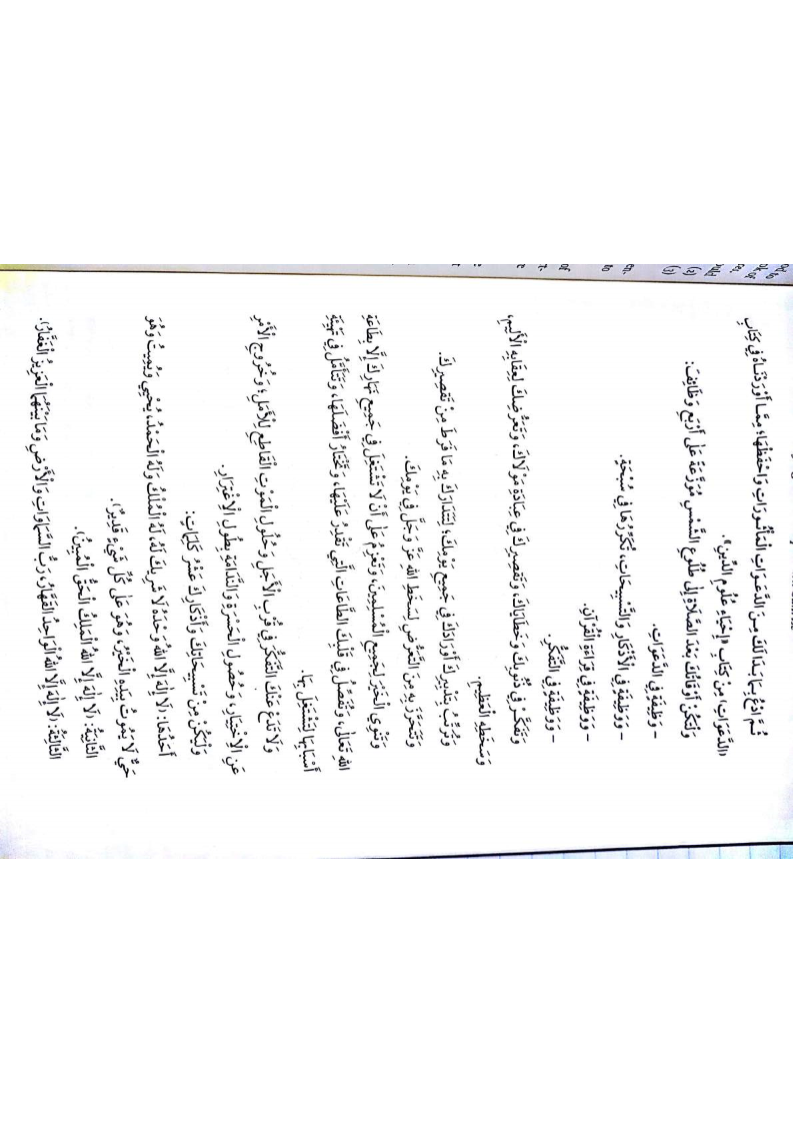 ثُمَّ ادْعُ بِمَا بَدَا لَكَ مِنَ الدَّعَوَاتِ الْمَأْثُورَاتِ وَاحْفَظْهَا، مِمَّا أَوْرَدْنَاهُ فِي كِتَابِ
«الدَّعَوَاتِ» مِنْ كِتَابِ «إِحْيَاءِ عُلُومِ الدِّينِ».
وَلْتَكُنْ أَوْقَاتُكَ بَعْدَ الصَّلَاةِ إِلَى طُلُوعِ الشَّمْسِ مُوَزَّعَةً عَلَى أَرْبَعِ وَظَائِفَ:
- وَظِيفَةٍ فِي الدَّعَوَاتِ.
- وَوَظِيفَةٍ فِي الْأَذْكَارِ وَالتَّسْبِيحَاتِ، تُكَرِّرُهَا فِي سُبْحَةٍ.
- وَوَظِيفَةٍ فِي قِرَاءَةِ الْقُرْآنِ.
- وَوَظِيفَةٍ فِي التَّفَكُّرِ.
وَتَفَكَّرْ فِي ذُنُوبِكَ وَخَطَايَاكَ، وَتَقْصِيرِكَ فِي عِبَادَةِ مَوْلَاكَ، وَتَعَرُّضِكَ لِعِقَابِهِ الْأَلِيمِ،
وَسَخَطِهِ الْعَظِيمِ.
وَتُرَتِّبُ بِتَدْبِيرِكَ أَوْرَادَكَ فِي جَمِيعِ يَوْمِكَ؛ لِتَتَدَارَكَ بِهِ مَا فَرَطَ مِنْ تَقْصِيرِكَ.
وَتَحْتَرِزَ بِهِ مِنَ التَّعَرُّضِ لِسَخَطِ اللهِ عَزَّ وَجَلَّ فِي يَوْمِكَ.
وَتَنْوِي الْخَيْرَ لِجَمِيعِ الْمُسْلِمِينَ، وَتَعْزِمُ عَلَى أَنْ لَا تَشْتَغِلَ فِي جَمِيعِ نَهَارِكَ إِلَّا بِطَاعَةِ
اللهِ تَعَالَى، وَتُفَصِّلُ فِي قَلْبِكَ الطَّاعَاتِ الَّتِي تَقْدِرُ عَلَيْهَا، وَتَخْتَارُ أَفْضَلَهَا، وَتَتَأَمَّلُ فِي تَهْيِئَةِ
أَسْبَابِهَا لِتَشْتَغِلَ بِهَا.
وَلَا تَدَعْ عَنْكَ التَّفَكُّرَ فِي قُرْبِ الْأَجَلِ وَحُلُولِ الْمَوْتِ الْقَاطِعِ لِلْأَمَلِ، وَخُرُوجِ الْأَمْرِ
عَنِ الِاخْتِيَارِ، وَحُصُولِ الْحَسْرَةِ وَالنَّدَامَةِ بِطُولِ الِاغْتِرَارِ.
وَلْيَكُنْ مِنْ تَسْبِيحَاتِكَ وَأَذْكَارِكَ عَشْرُ كَلِمَاتٍ:
أَحَدُهَا: (لَا إِلٰهَ إِلَّا اللهُ وَحْدَهُ لَا شَرِيكَ لَهُ، لَهُ الْمُلْكُ وَلَهُ الْحَمْدُ، يُحْيِي وَيُمِيتُ وَهُوَ
حَيٌّ لَا يَمُوتُ بِيَدِهِ الْخَيْرُ، وَهُوَ عَلَى كُلِّ شَيْءٍ قَدِيرٌ).
الثَّانِيَةُ: (لَا إِلٰهَ إِلَّا اللهُ الْمَلِكُ الْحَقُّ الْمُبِينُ).
الثَّالِثَةُ: (لَا إِلٰهَ إِلَّا اللهُ الْوَاحِدُ الْقَهَّارُ، رَبُّ السَّمَاوَاتِ وَالْأَرْضِ وَمَا بَيْنَهُمَا الْعَزِيزُ الْغَفَّارُ).